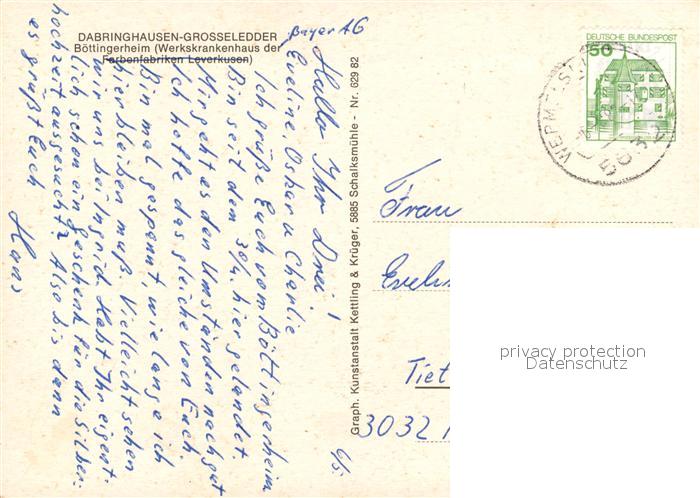 DABRINGHAUSEN-GROSSELEDDER
Böttingerheim (Werkskrankenhaus der
Farbenfabriken Leverkusen)
Bayer AG
6/5.
Hallo Ihr Drei!
Eveline Oskar u Charlie
Ich grüße Euch vom Böttingerheim
Bin seit dem 30/4. hier gelandet.
Mir geht es den Umständen nach gut
Ich hoffe das gleiche von Euch.
Bin mal gespannt, wie lange ich
hier bleiben muß. Vielleicht sehen
wir uns bei Ingrid. Habt Ihr eigent-
lich schon ein Geschenk für die Silber-
hochzeit ausgesucht? Also bis dann
es grüßt Euch
Hans
Graph. Kunstanstalt Kettling & Krüger, 5885 Schalksmühle - Nr. 629 82
DEUTSCHE BUNDESPOST
50
WERMELSK
Frau
Eveli
Tiet
3032
privacy protection
Datenschutz